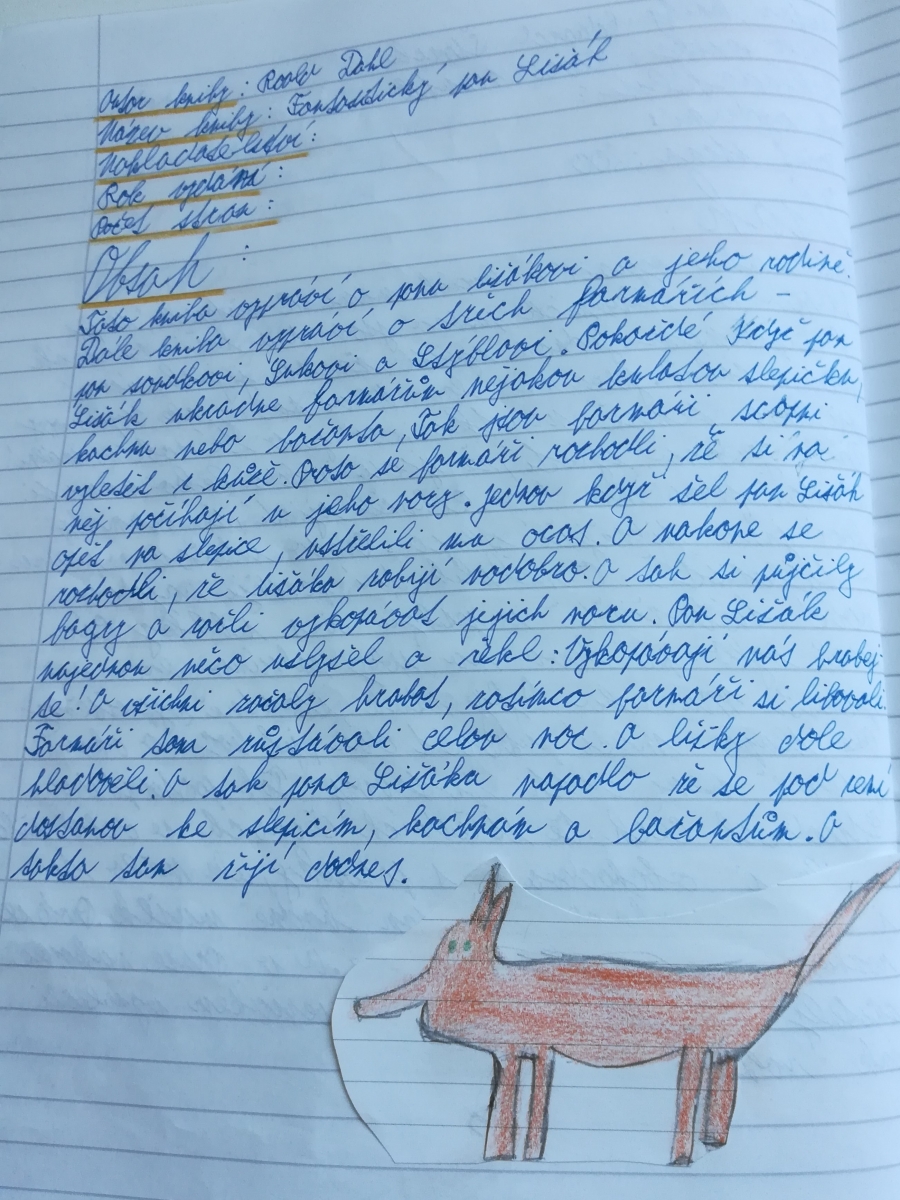 Autor knihy: Roald Dahl
Název knihy: Fantastický pan Lišák
Nakladatelství:
Rok vydání:
Počet stran:
Obsah:
Tato kniha vypráví o panu lišákovi a jeho rodině.
Dále kniha vypráví o třech farmářích -
pan soudkovi, Sukovi a Štýblovi. Pokaždé Když pan
Lišák ukradne farmářům nějakou kulatou slepičku,
kachnu nebo bažanta, Tak jsou farmáři scopni
vyletět z kůže. Proto se farmáři rozhodli, že si na
něj počíhají u jeho nory. jednou když šel pan Lišák
opět na slepice, ustřelili mu ocas. A nakone se
rozhodli, že lišáka zabijí nadobro. A tak si půjčily
bagry a začli vykopávat jejich noru. Pan Lišák
najednou něco uslyšel a řekl: Vykopávají nás hrabej
se! A všichni začaly hrabat, zatímco farmáři si libovali.
Farmáři tam zůstávali celou noc. A lišky dole
hladověli. A tak pana Lišáka napadlo že se pod zemí
dostanou ke slepicím, kachnám a bažantům. A
takto tam žijí dodnes.